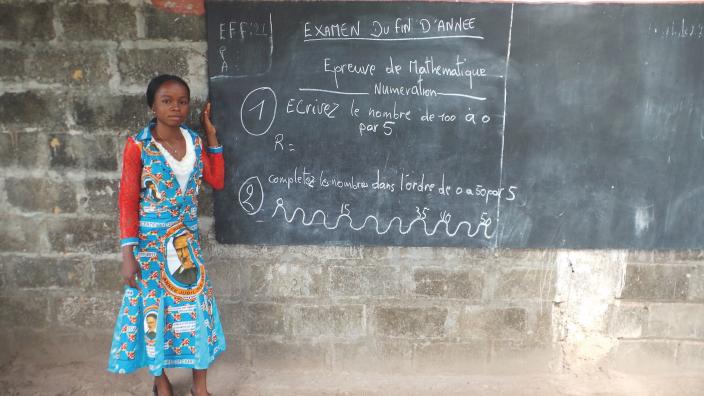 EFF:
P:
A:
EXAMEN DU FIN D'ANNEE
Epreuve de Mathematique
Numeration
1 ECRIVEZ le nombre de 100 à 0
par 5
R =
2 completez les nombres dans l'ordre de 0 a 50 par 5
0 15 35 40 50